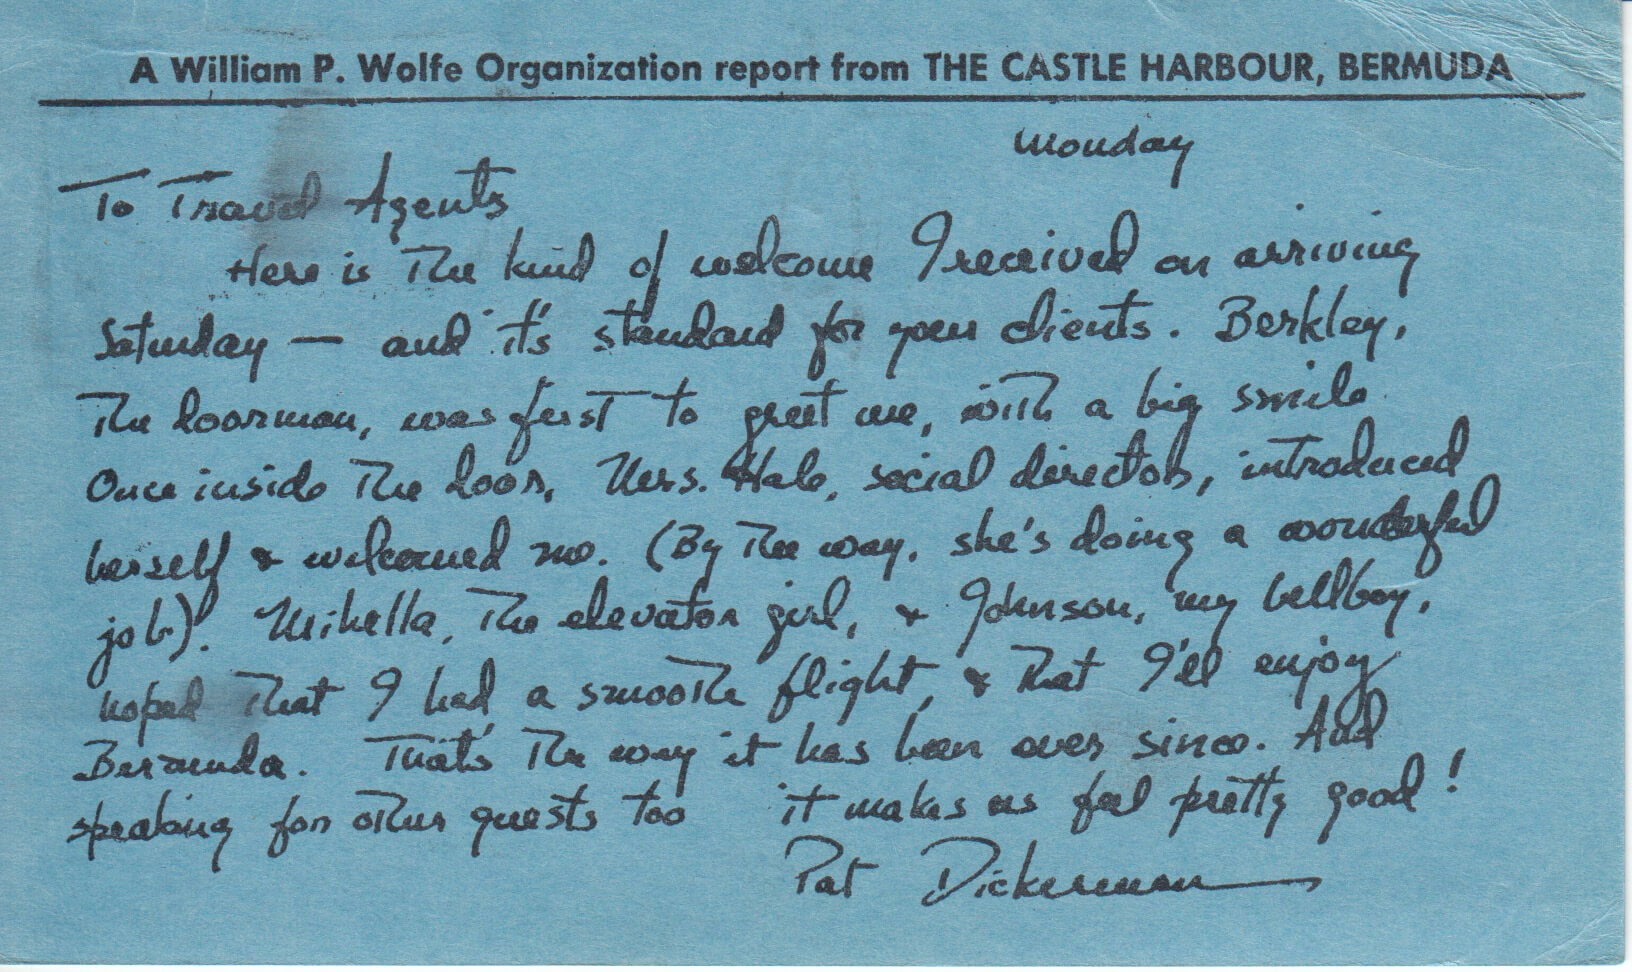 A William P. Wolfe Organization report from THE CASTLE HARBOUR, BERMUDA
Monday
To Travel Agents
Here is the kind of welcome I received on arriving
Saturday — and it's standard for your clients. Berkley,
the doorman, was first to greet me, with a big smile.
Once inside the door, Mrs. Hale, social director, introduced
herself & welcomed me. (By the way, she's doing a wonderful
job). Mikella, the elevator girl, & Johnson, my bellboy,
hoped that I had a smooth flight, & that I'll enjoy
Bermuda. That's the way it has been ever since. And
speaking for other guests too it makes us feel pretty good!
Pat Dickerman